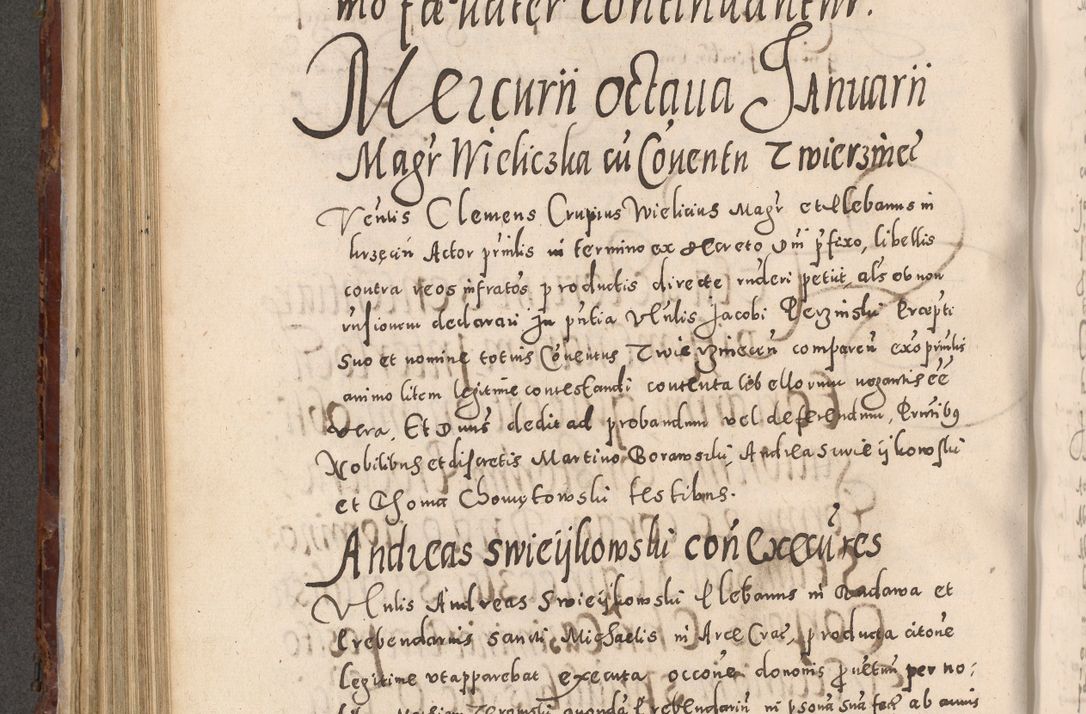 mo fœ uater continuantur.
Mercurii octaua Ianuarii
Magr Wieliczka cū Conentu Zwierzinec
Venlis Clemens Crupius Wielicius Magr et Plebanus in
Actor prnlis in termino ex decreto Dni pfixo, libellis
contra reos infratos productis directe ruderi petiit, als ob non
rusionem declarari In pntia Vlnlis Jacobi Perzinski Prœpti
suo et nomine totius Conentus Zwierzinecen comparen exo prnlis
animo litem legitime contestandi contenta libellorum negantis ēē
vera. Et Dnus dedit ad probandum vel deferendum,
Nobilibus et discretis Martino Borawski, Andrea Swieijkowski
et Thoma Chomętowski testibus.
Andreas Swieijkowski con Execut res
Vlnlis Andreas Swieijkowski Plebanus in Radawa et
Prebendarius Sancti Michaelis in Arce Crac, producta citone
legitime vt apparebat executa occone dononis per no:
quonda Prebendariu in psona sua fact ab annis